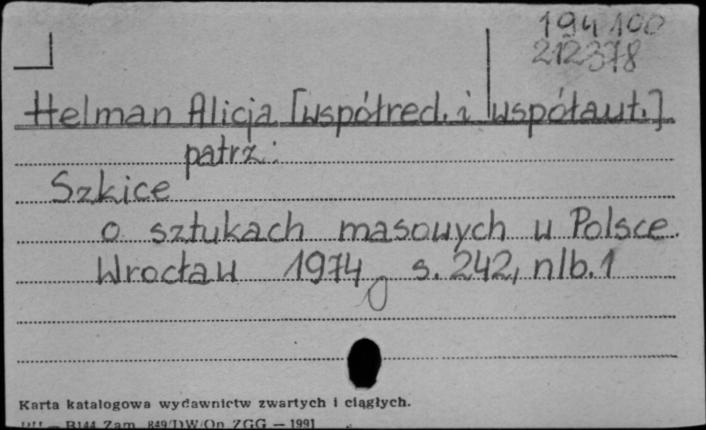 194100
212378
Helman Alicja [współred. i współaut.]
patrz:
Szkice
o sztukach masowych w Polsce.
Wrocław 1974 s. 242, nlb. 1
Karta katalogowa wydawnictw zwartych i ciągłych.
Pu1 — B144 Zam. 849/DW/Op. ZGG — 1991